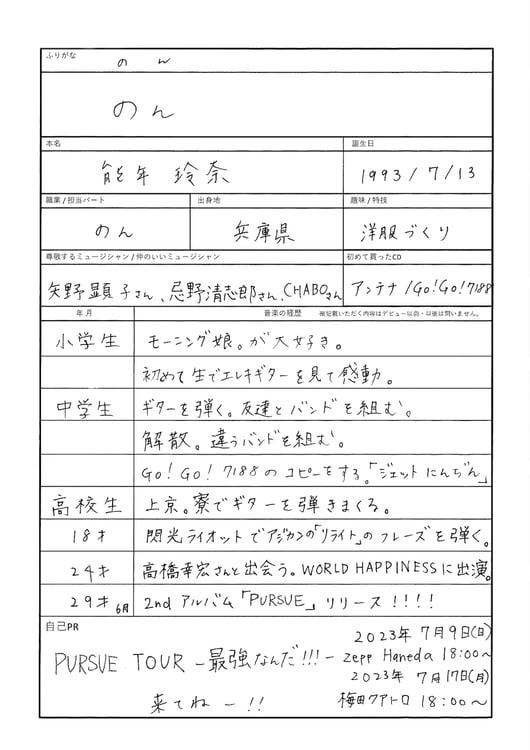 ふりがな
のん
のん
本名
誕生日
能年 玲奈
1993/7/13
職業/担当パート
出身地
趣味/特技
のん
兵庫県
洋服づくり
尊敬するミュージシャン/仲のいいミュージシャン
初めて買ったCD
矢野顕子さん、忌野清志郎さん、CHABOさん
アンテナ/Go!Go!7188
年月
音楽の経歴 ※記載いただく内容はデビュー以前・以後は問いません。
小学生 モーニング娘。が大好き。
初めて生でエレキギターを見て感動。
中学生 ギターを弾く。友達とバンドを組む。
解散。違うバンドを組む。
GO!GO!7188のコピーをする。「ジェットにんぢん」
高校生 上京。寮でギターを弾きまくる。
18才 閃光ライオットでアジカンの「リライト」のフレーズを弾く。
24才 高橋幸宏さんと出会う。WORLD HAPPINESSに出演。
29才6月 2nd アルバム「PURSUE」リリース!!!!
自己PR
PURSUE TOUR -最強なんだ!!!-
来てねー!!
2023年 7月9日(日)
Zepp Haneda 18:00~
2023年 7月17日(月)
梅田クアトロ 18:00~